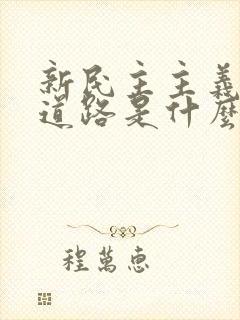 新民主主義
道路是什麼
程萬惠